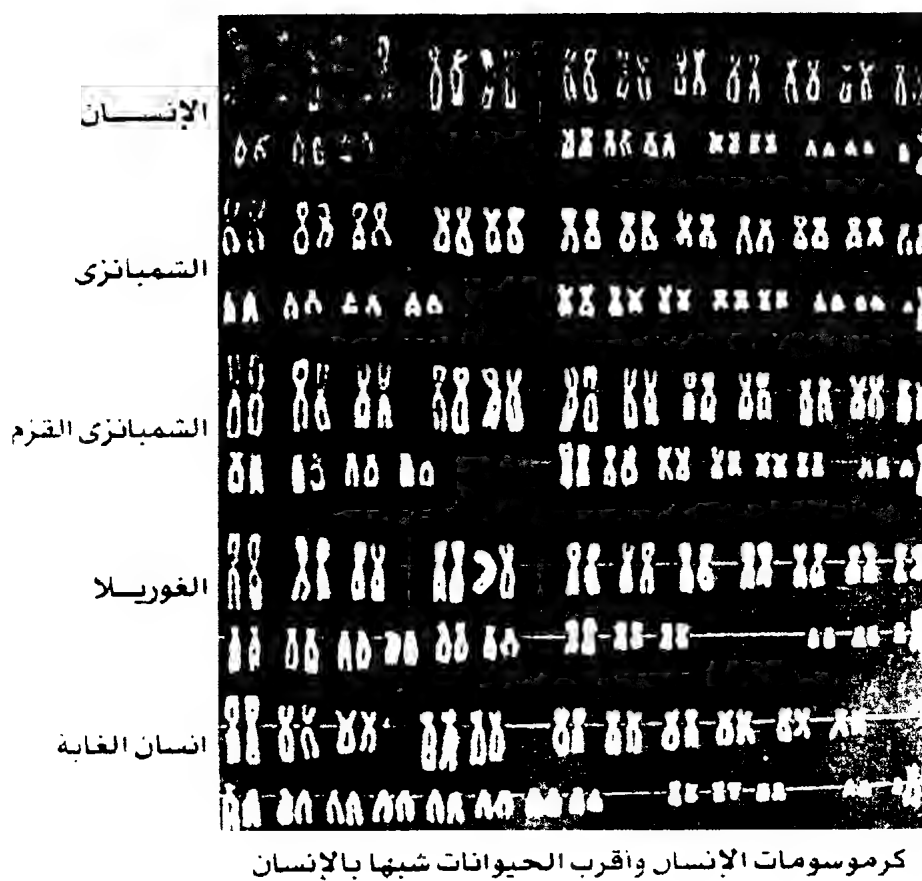 الإنسـان
الشمبانزى
الشمبانزى القزم
الغوريـلا
انسان الغابة
كرموسومات الإنسان وأقرب الحيوانات شبها بالإنسان